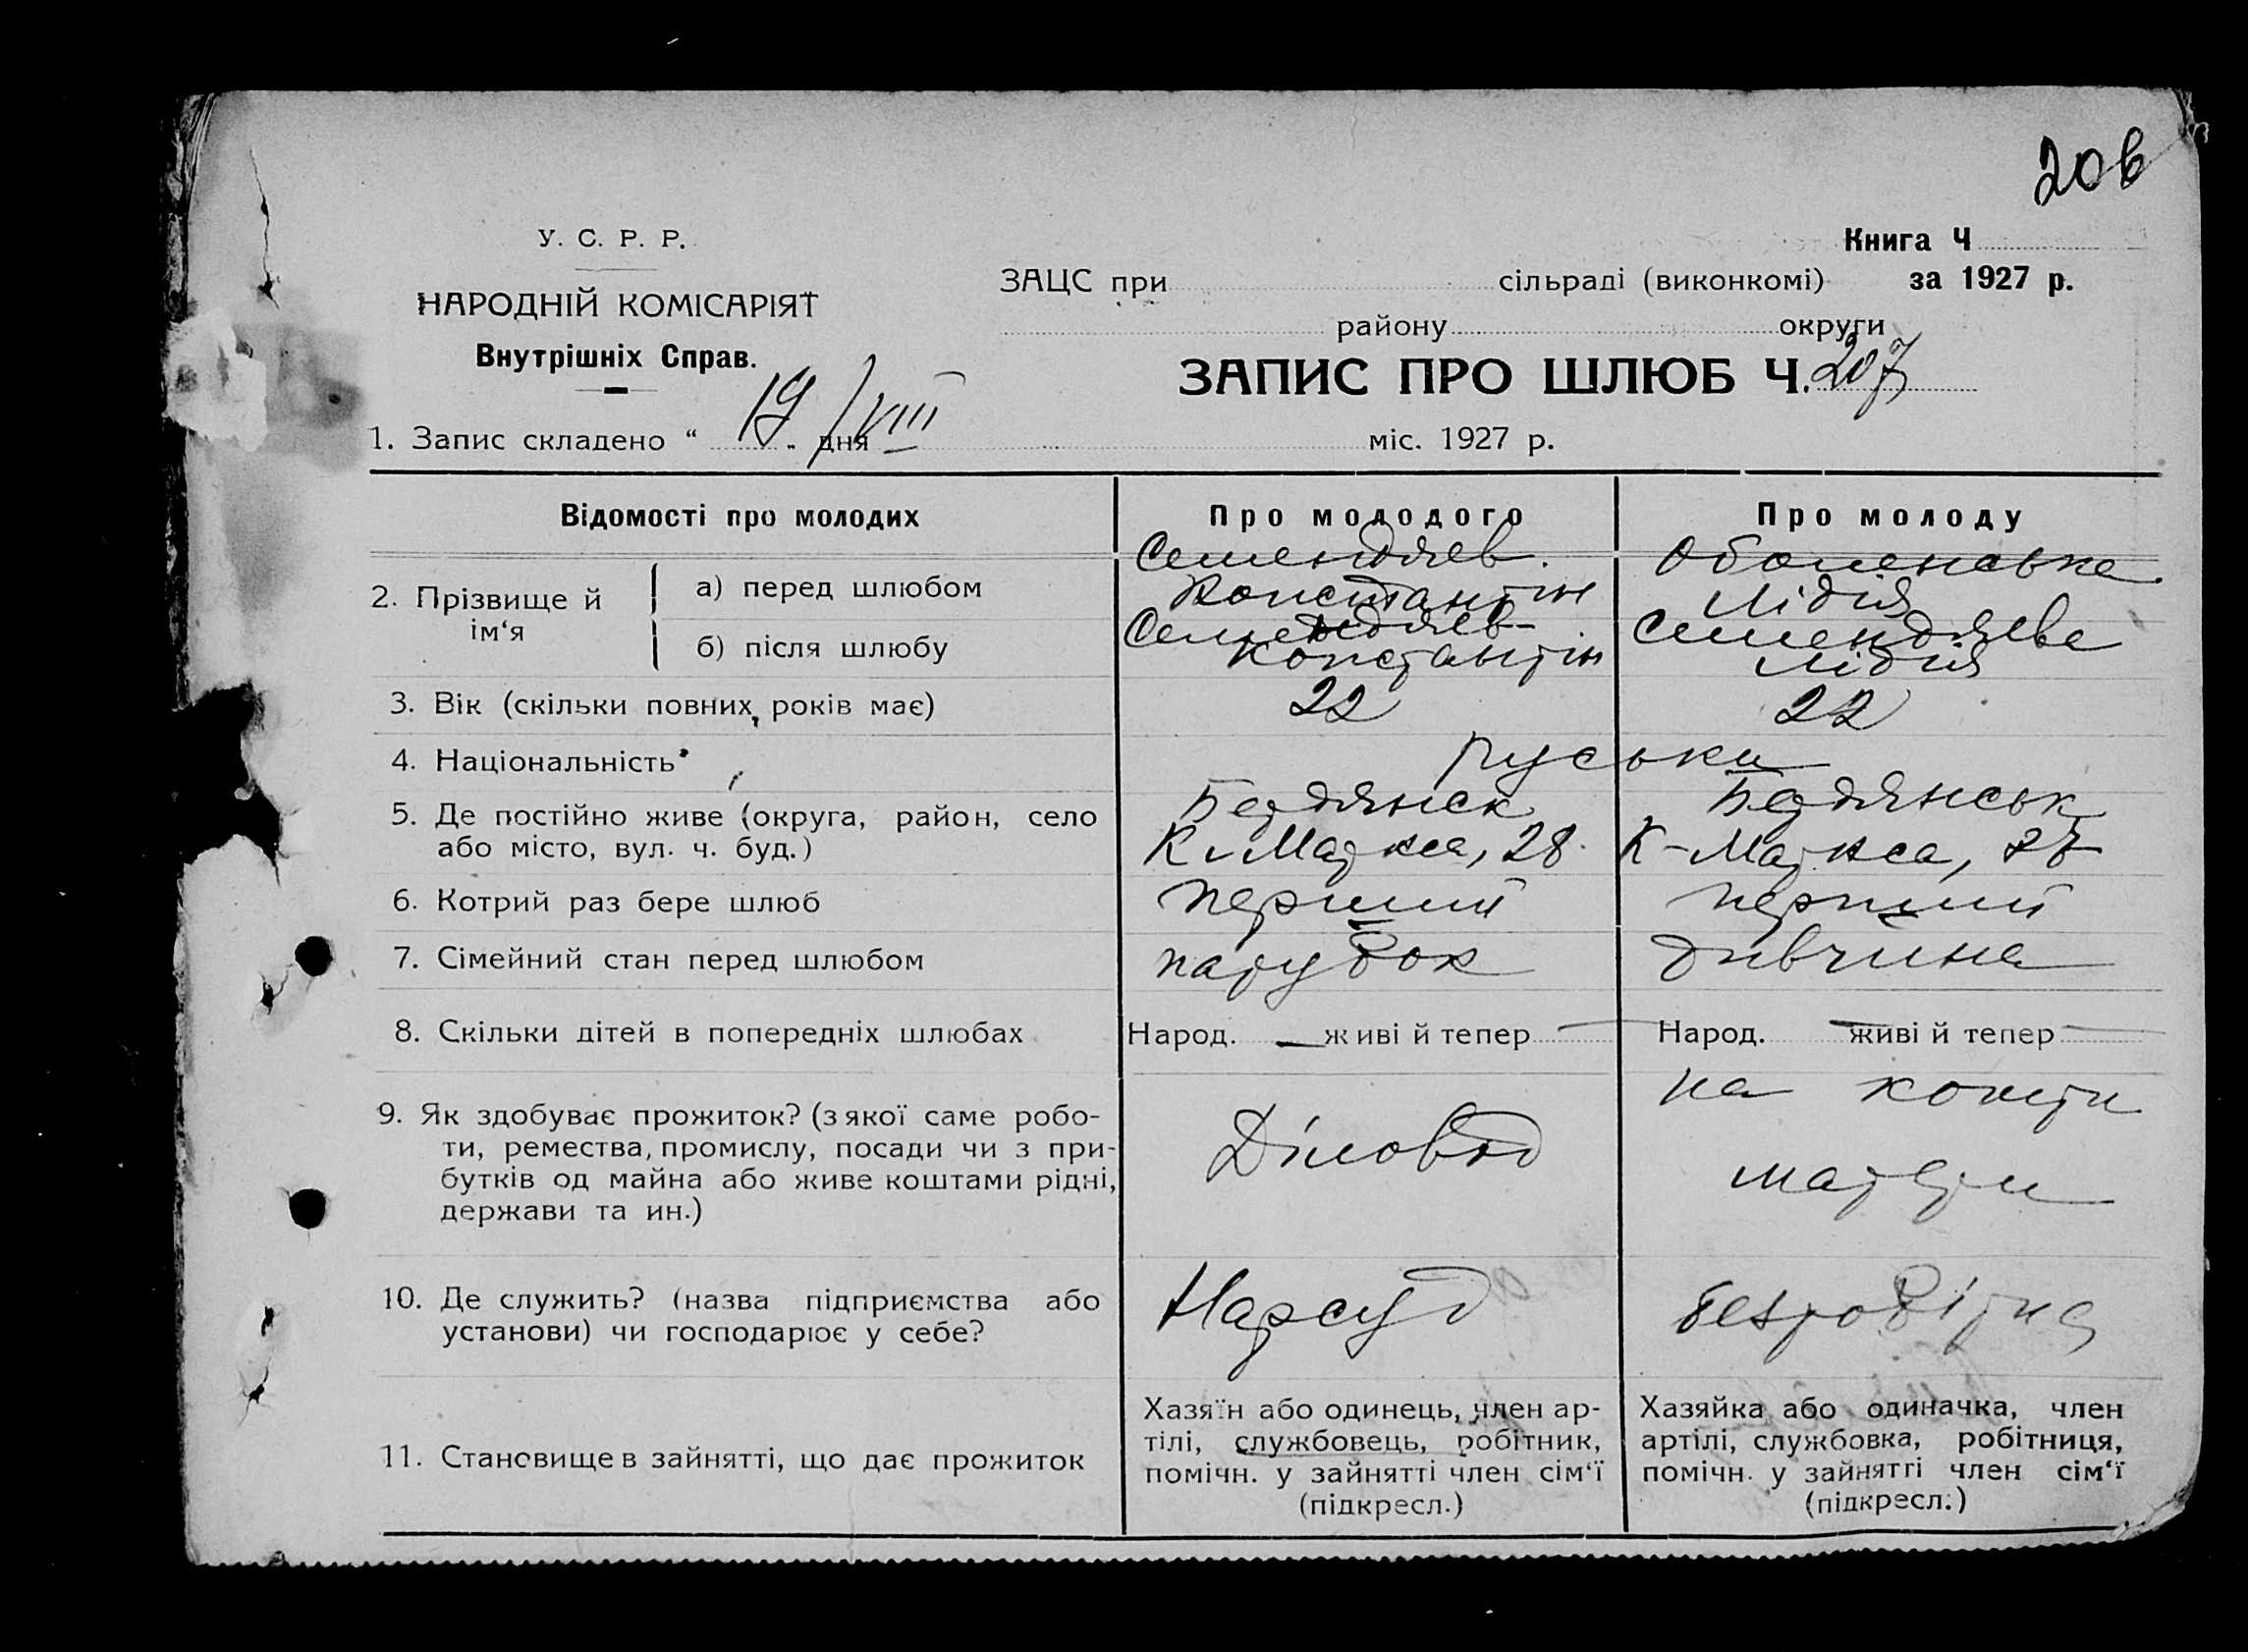 20в
У. С. Р. Р.
НАРОДНІЙ КОМІСАРІЯТ
Внутрішніх Справ.
Книга Ч
за 1927 р.
ЗАЦС при сільраді (виконкомі)
району округи
ЗАПИС ПРО ШЛЮБ Ч. 207
1. Запис складено “ 19 „ дня /VIII міс. 1927 р.
Відомості про молодих Про молодого Про молоду
2. Прізвище й ім‘я
а) перед шлюбом Семендяев. Константін Оболенська Лідія
б) після шлюбу Семендяев Константін Семендяева Лідія
3. Вік (скільки повних, років має) 22 22
4. Національність руськи
5. Де постійно живе (округа, район, село Бердянск Бердянськ
або місто, вул. ч. буд.) К. Маркса, 28. К-Маркса, 28
6. Котрий раз бере шлюб перший перший
7. Сімейний стан перед шлюбом парубок дивчина
8. Скільки дітей в попередніх шлюбах Народ. — живі й тепер — Народ. — живі й тепер —
9. Як здобуває прожиток? (з якої саме робо-
ти, ремества, промислу, посади чи з при-
бутків од майна або живе коштами рідні,
держави та ин.)
Діловод
на кошти
матери
10. Де служить? (назва підприємства або
установи) чи господарює у себе?
Нарсуд
безробітна
11. Становище в зайнятті, що дає прожиток
Хазяїн або одинець, член ар-
тілі, службовець, робітник,
помічн. у зайнятті член сім‘ї
(підкресл.)
Хазяйка або одиначка, член
артілі, службовка, робітниця,
помічн. у зайнятті член сім‘ї
(підкресл.)